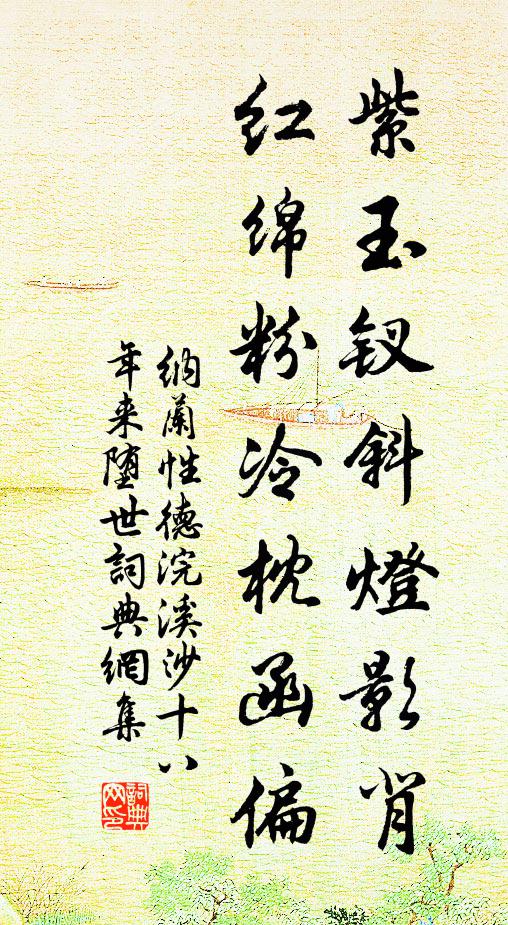 紫玉钗斜燈影背
红绵粉冷枕函偏
纳蘭性德浣溪沙十八
年来堕世詞典網集
詞典
网印